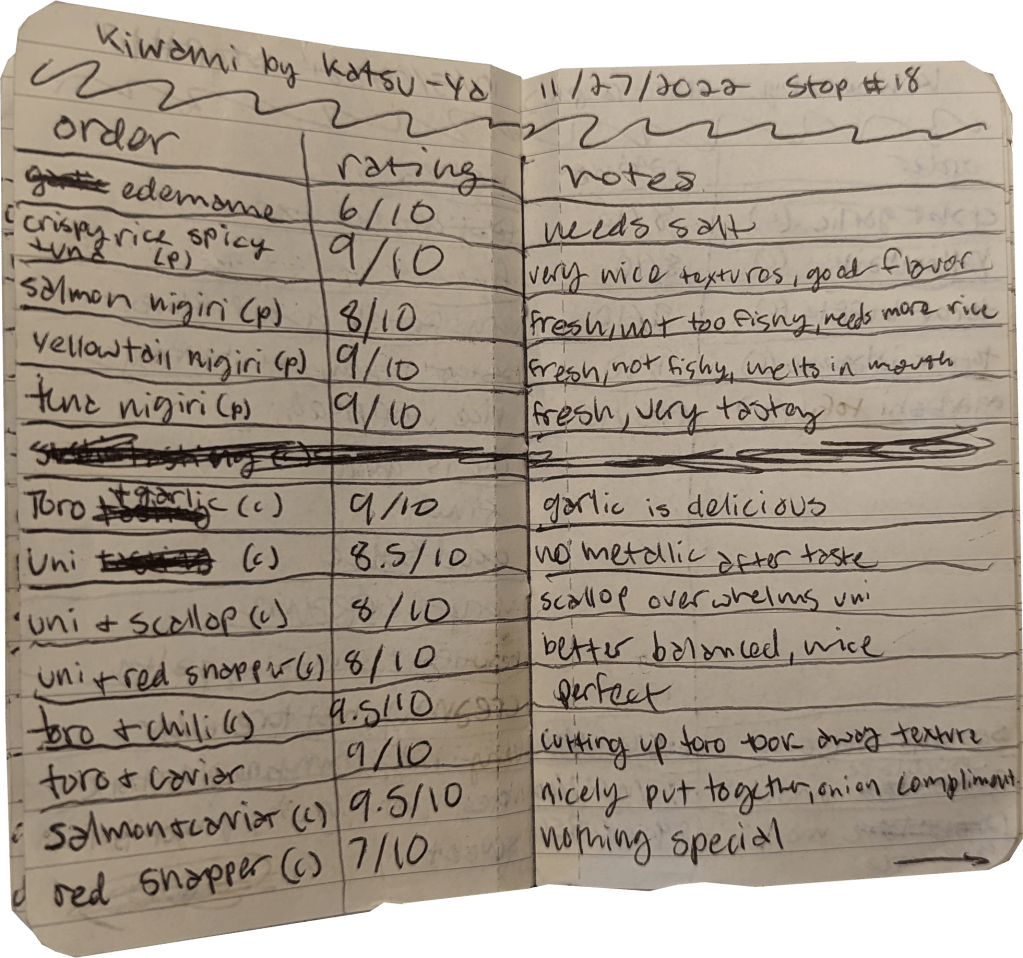 Kiwami by Katsu-Ya 11/27/2022 Stop #18
order rating notes
edemame 6/10 needs salt
crispy rice spicy
tuna (p) 9/10 very nice textures, good flavor
salmon nigiri (p) 8/10 fresh, not too fishy, needs more rice
yellowtail nigiri (p) 9/10 fresh, not fishy, melts in mouth
tuna nigiri (p) 9/10 fresh, very tastey
Toro + garlic (c) 9/10 garlic is delicious
uni (c) 8.5/10 no metallic after taste
uni + scallop (c) 8/10 scallop overwhelms uni
uni + red snapper (c) 8/10 better balanced, nice
toro + chili (c) 9.5/10 perfect
toro + caviar 9/10 cutting up toro took away texture
salmon + caviar (c) 9.5/10 nicely put together, onion compliment
red snapper (c) 7/10 nothing special